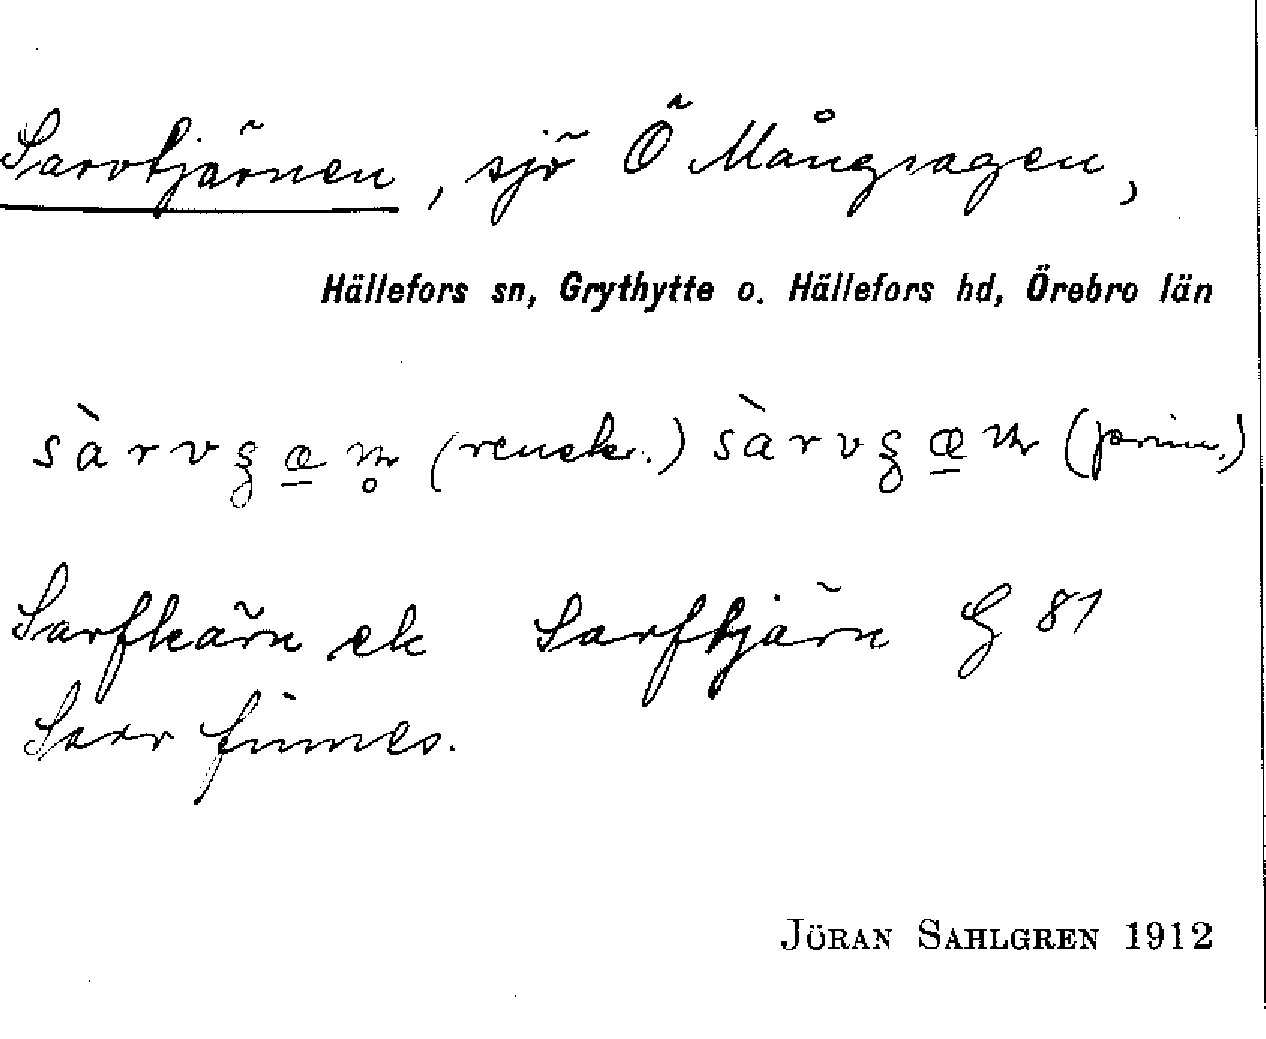 Sarvtjärnen, sjö Ö Mångsagen,
Hällefors sn, Grythytte o. Hällefors hd, Örebro län
Sarfkärn ek Sarftjärn G 81
Sarv finnes.
JÖRAN SAHLGREN 1912